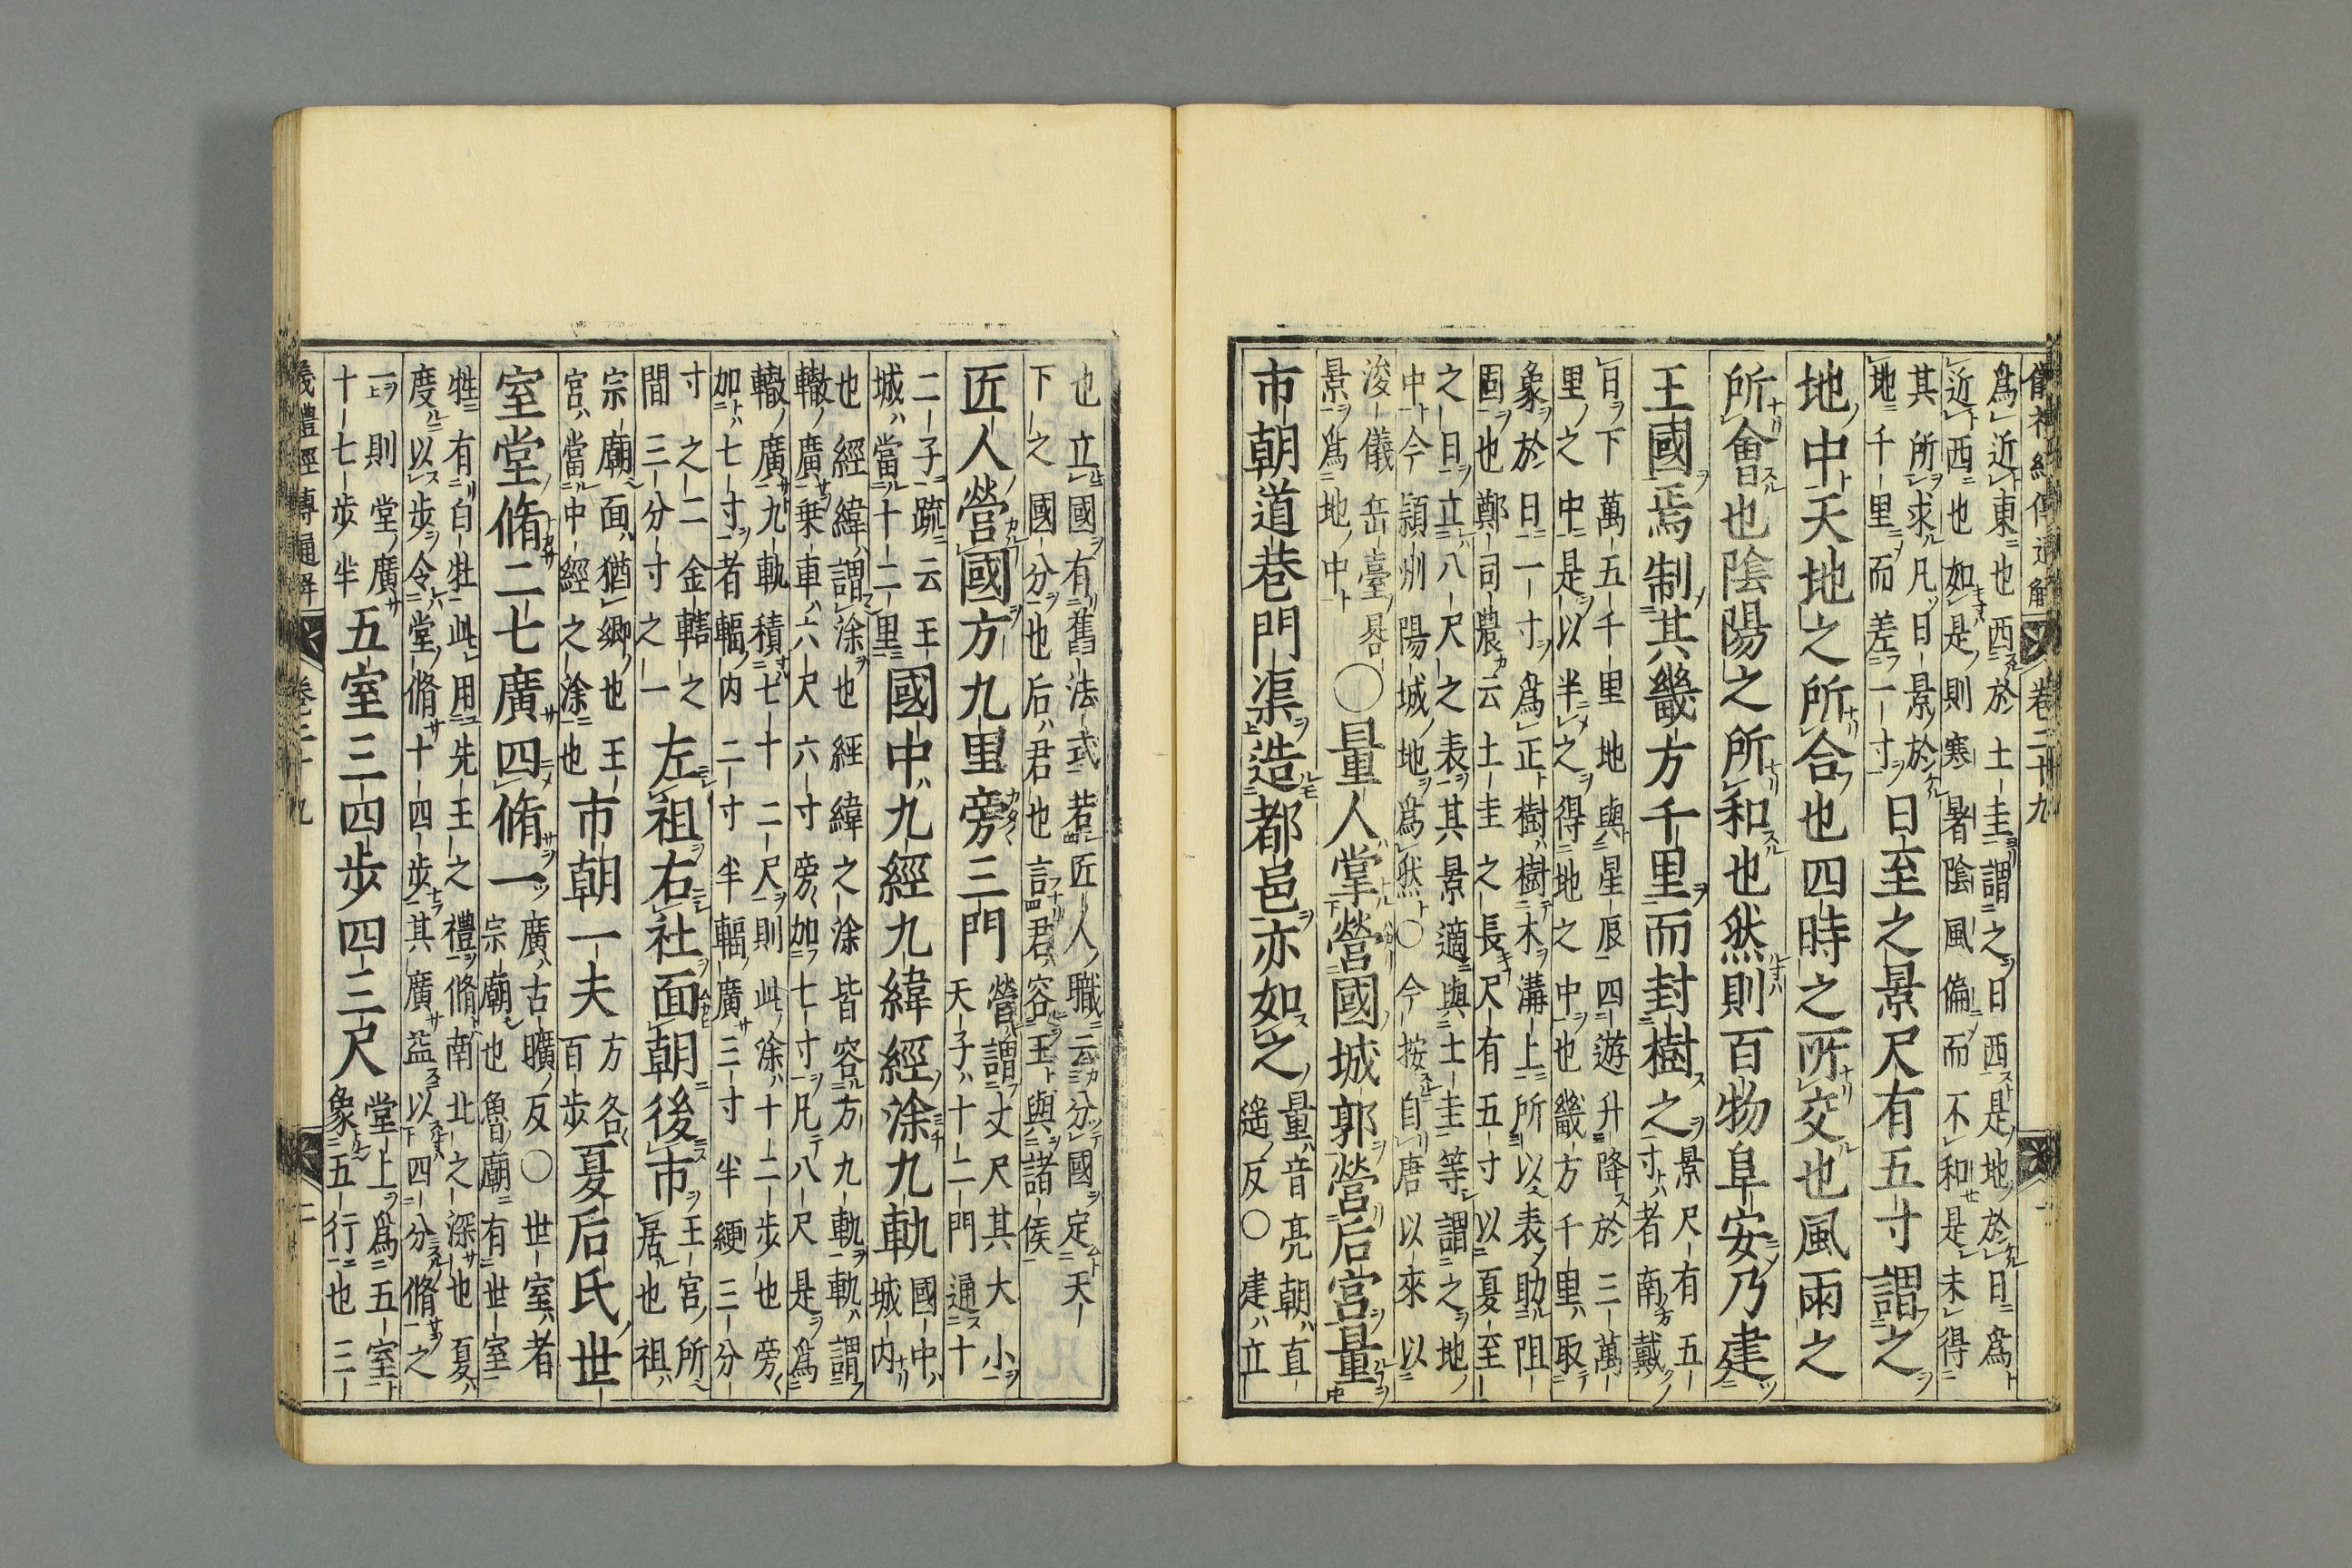 儀禮經傳通解 卷二十九 一
爲近東也西於土圭謂之日西是地於日爲
近西也如是則寒暑陰風偏而不和是未得
其所求凡日景於地千里而差一寸日至之景尺有五寸謂之
地中天地之所合也四時之所交也風雨之
所會也陰陽之所和也然則百物阜安乃建
王國焉制其畿方千里而封樹之景尺有五寸者南戴
日下萬五千里地與星辰四遊升降於三萬
里之中是以半之得地之中也畿方千里取
象於日一寸爲正樹樹木溝上所以表助阻
固也鄭司農云土圭之長尺有五寸以夏至
之日立八尺之表其景適與土圭等謂之地
中今頴州陽城地爲然○今按自唐以來以
浚儀岳臺晷景爲地中○量人掌營國城郭營后宮量
市朝道巷門渠造都邑亦如之量音亮朝直遥反○建立
也立國有舊法式若匠人職云分國定天
下之國分也后君也言君容王與諸侯
匠人營國方九里旁三門營謂丈尺其大小天子十二門通十
二子疏云王城當十二里國中九經九緯經涂九軌國中城内
也經緯謂涂也經緯之涂皆容方九軌軌謂
轍廣乗車六尺六寸旁加七寸凡八尺是爲
轍廣九軌積七十二尺則此涂十二步也旁
加七寸者輻内二寸半輻廣三寸半綆三分
寸之二金轄之間三分寸之一左祖右社面朝後市王宮所居也祖
宗廟面猶郷也王宮當中經之涂也市朝一夫方各百步夏后氏世
室堂脩二七廣四脩一廣古曠反○世室者宗廟也魯廟有世室
牲有白牡此用先王之禮脩南北之深也夏
度以步令堂脩十四步其廣益以四分脩之
一則堂廣十七步半五室三四步四三尺堂上爲五室象五行也三
儀禮經傳通解 卷二十九 二